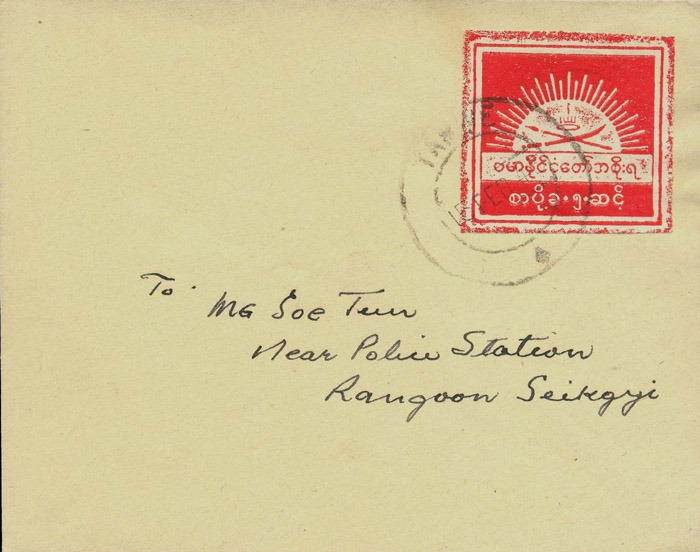 ဗမာနိုင်ငံတော်အစိုးရ
စာပို့ခ • ၅ • ဆင့်
To
MG Soe Tun
Near Police Station
Rangoon Seikgyi